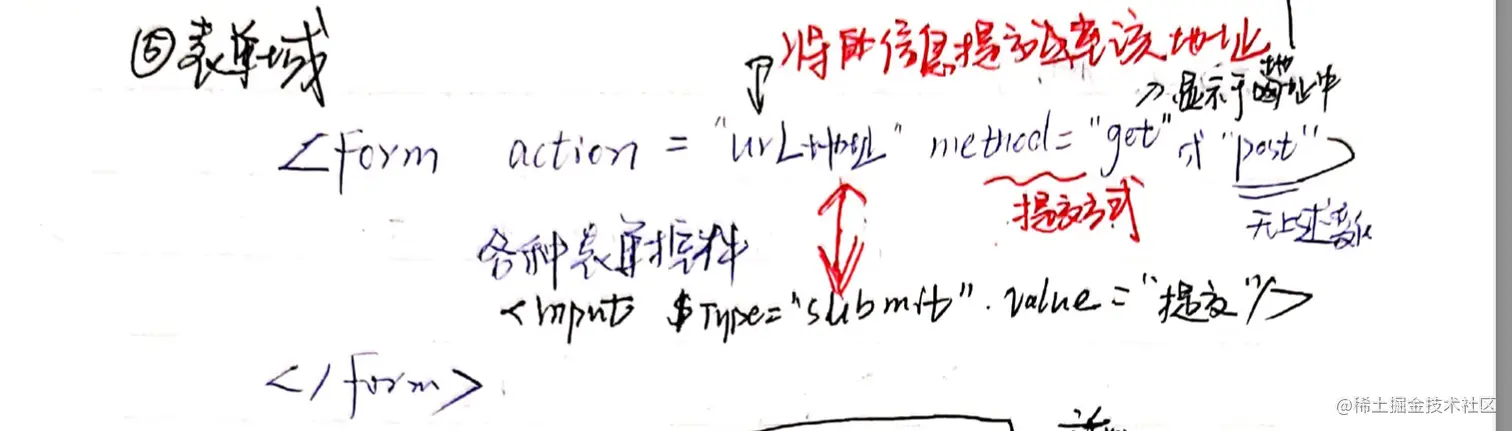 ⑤表单域
将所信息提交至该地址
显示于地址中
<Form action = "urL地址" method= "get" 或 "post">
提交方式
无上述
各种表单控件
<Input Type="submit" value="提交"/>
</form>
@稀土掘金技术社区